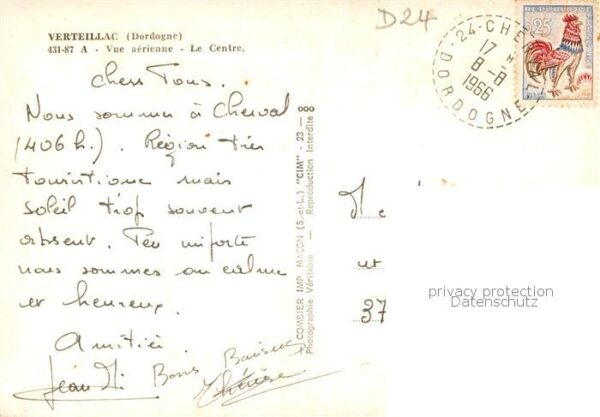 VERTEILLAC (Dordogne)
431-87 A - Vue aérienne - Le Centre.
D24
24-CHER
17 H
8-8
1966
DORDOGNE
25
Chers Tous.
Nous sommes à Cherval
(406 h.). Région très
touristique mais
soleil trop souvent
absent. Peu importe
nous sommes au calme
et heureux.
Amitiés
Jean Mi
Bons Baisers
Thérèse
COMBIER IMP. MACON (S.-et-L.) "CIM" - 23 - 000
Photographie Véritable - Reproduction Interdite
M e
et
37
privacy protection
Datenschutz